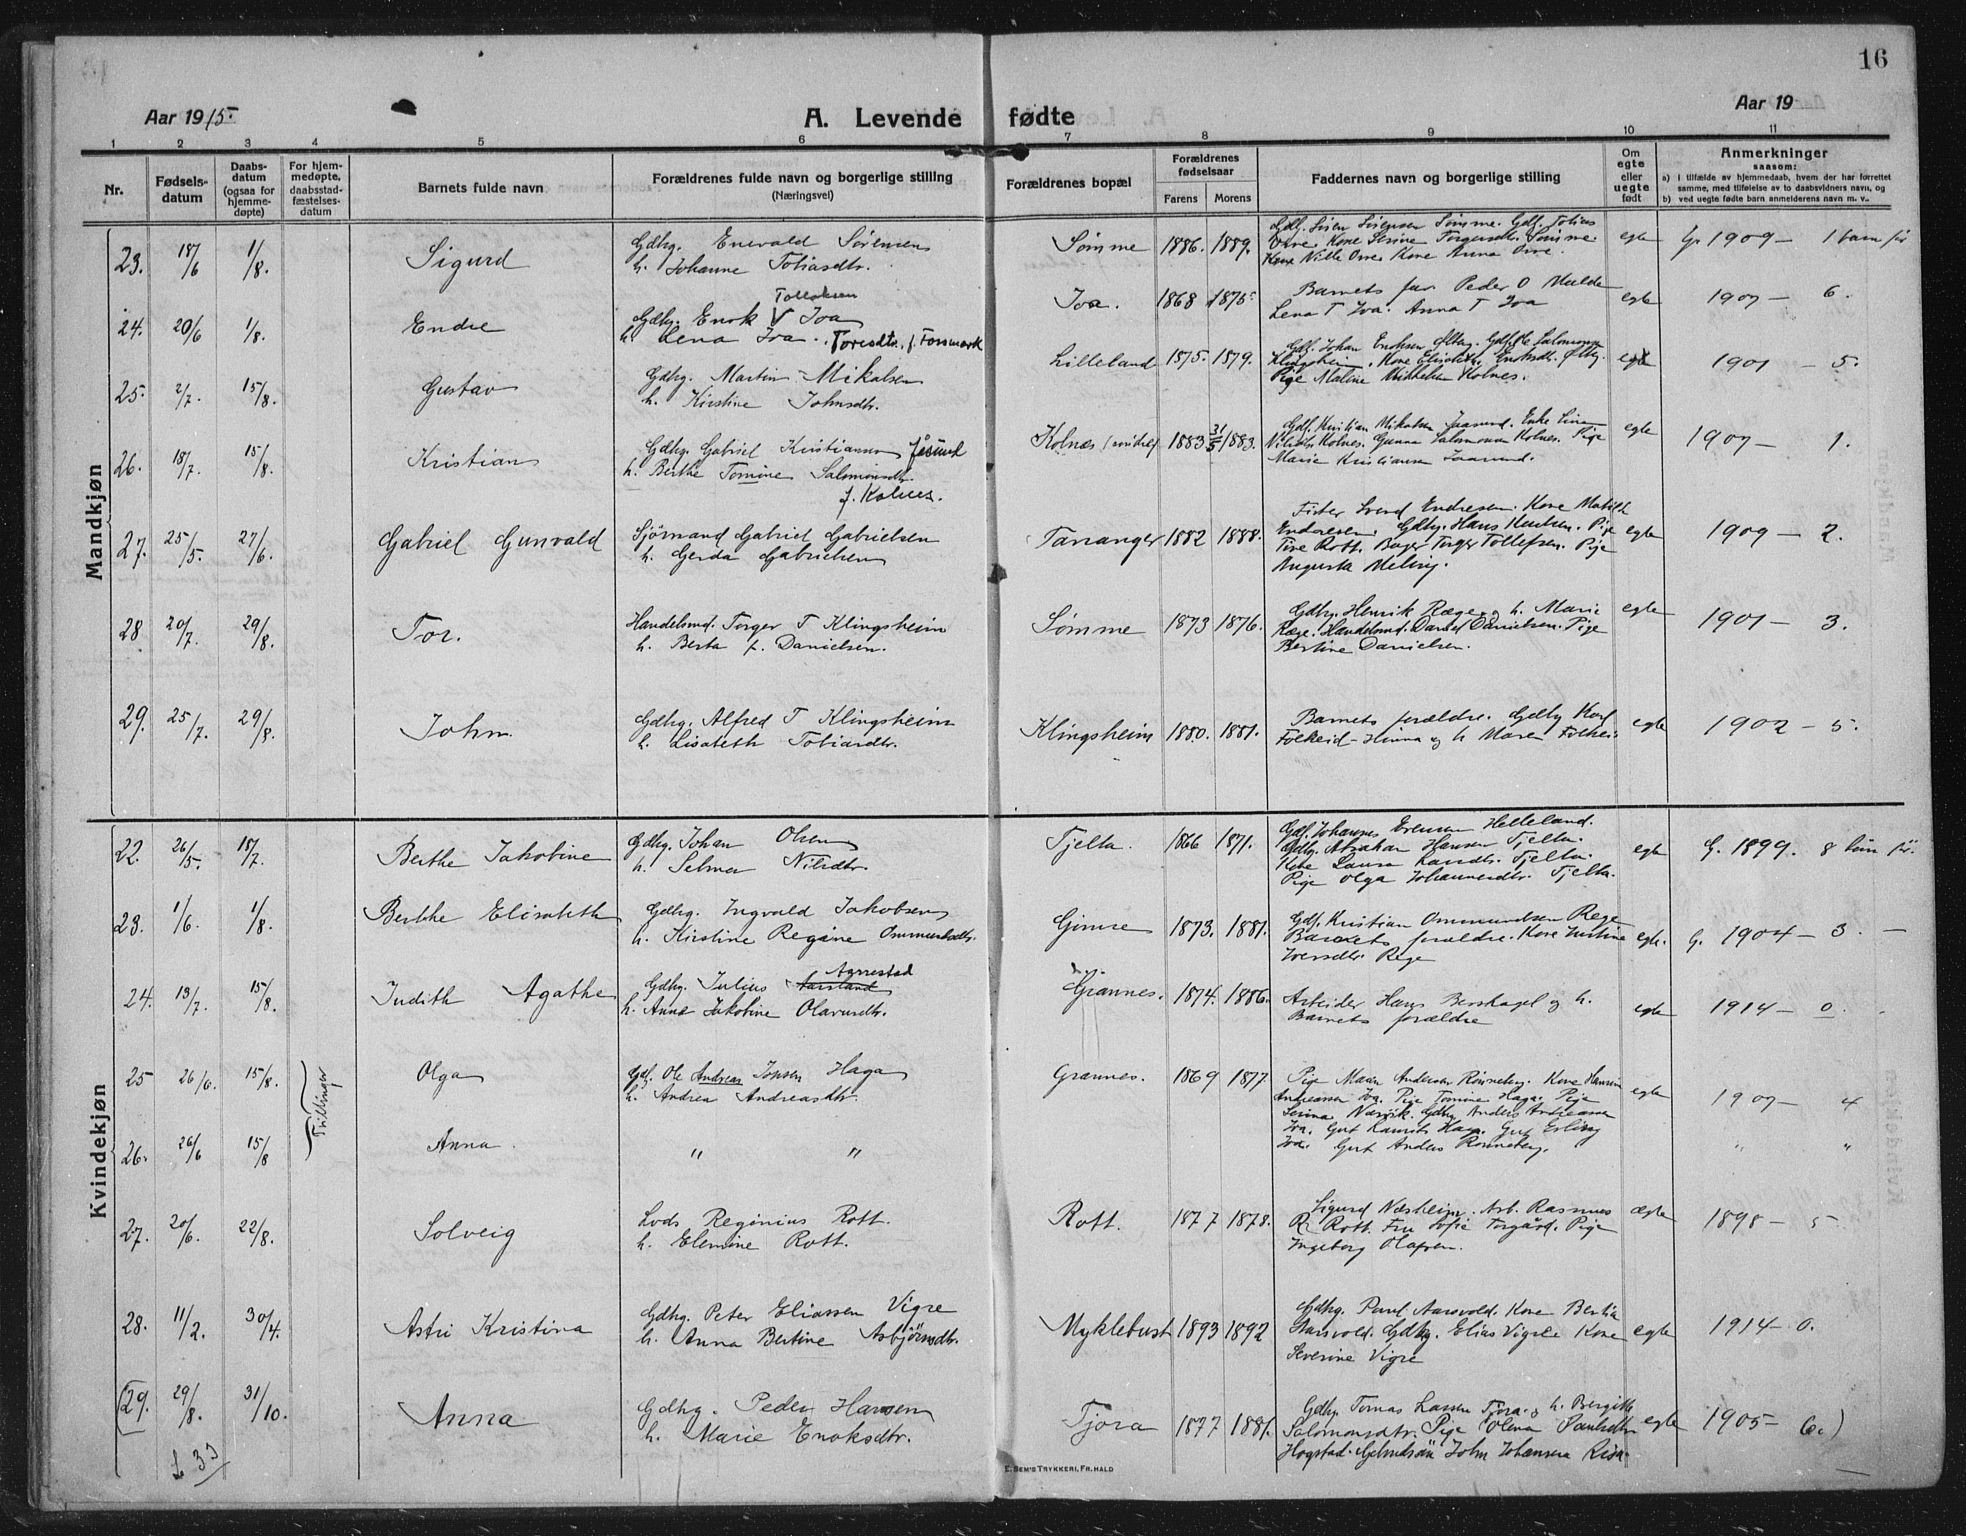 16
Aar 1915. A. Levende fødte Aar 19
1 2 3 4 5 6 7 8 9 10 11
Nr. Fødselsdatum Daabsdatum (ogsaa for hjemmedøpte) For hjemmedøpte, daabsstadfæstelsesdatum Barnets fulde navn Forældrenes fulde navn og borgerlige stilling (Næringsvei) Forældrenes bopæl Forældrenes fødselsaar Farens Morens Faddernes navn og borgerlige stilling Om egte eller uegte født Anmerkninger saasom:
a) I tilfælde av hjemmedaab, hvem der har forrettet samme, med tilføielse av to daabsvidners navn, og
b) ved uegte fødte barn anmelderens navn m. v..
Mandkjøn
23. 18/6 1/8. Sigurd Gdbg. Enevald Sørensen
h. Johanne Tobiasdtr. Sømme 1886. 1889. Gdbg. Sören Sörensen Sömme. Gdbg. Tobias
Orre. Kone Serine Torgersdtr. Sömme.
Kone Nille Orre. Kone Anna Orre. egte G. 1909 - 1 barn før
24. 20/6 1/8. Endre Gdbg. Enok V Tollaksen Ioa
h. Lena Ioa. Toresdtr. f. Forsmark Ioa. 1868 1875 Barnets far Peder O Melde
Lena T Ioa. Anna T Ioa egte 1907 - 6.
25. 2/7. 15/8. Gustav Gdbg. Martin Mikalsen
h. Kirstine Johnsdtr. Lilleland 1875. 1879. Gdf. Johan Enoksen Ølbg. Gdf. Ole Salomonsen
Klingsheim. Kone Elisabeth Enoksdtr. Ølbg.
Pige Maline Mikkelsen Kolnes. egte 1901 - 5.
26. 18/7. 15/8. Kristian Gdbg. Gabriel Kristiansen Jåsund
h. Berthe Tomine Salomonsdtr.
f. Kolnes. Kolnæs (nordre) 1883 31/5 1883. Gdf. Kristian Mikalsen Jaasund. Enke Sina
Nilsdtr Kolnes. Gunna Salomonsen Kolnes. Pige
Marie Kristiansen Jaasund. egte 1907 - 1.
27. 25/5. 27/6. Gabriel Gunvald Sjømand Gabriel Gabrielsen
h. Gerda Gabrielsen Tananger 1882 1888. Fisker Sverd Endresen. Kone Matilde
Endresen. Gdbg. Hans Knutsen. Pige
Tine Rott. Bager Torger Tollefsen. Pige
Augusta Meling. egte 1909 - 2.
28 20/7. 29/8. Tor. Handelsmd. Torger T Klingsheim
h. Berta f. Danielsen. Sømme 1873 1876. Gdbg. Henrik Ræge og h. Marie
Ræge. Handelsmd. Daniel Danielsen. Pige
Bertine Danielsen. egte 1901 - 3.
29. 25/7. 29/8. John. Gdbg. Alfred T Klingsheim
h. Lisabeth Tobiasdtr. Klingsheim 1880. 1881. Barnets forældre. Gdbg Karl
Folkeid - Hinna og h Maren Folkei: egte 1902 - 5.
Kvindekjøn
22. 26/5. 18/7. Berthe Jakobine Gdbg. Johan Olsen
h. Selma Nilsdtr. Tjelta. 1866 1871. Gdf. Johannes Evensen Helleland.
Gdbg. Abraham Hansen Tjelta.
Kone Laura Larsdtr. Tjelta.
Pige Olga Johannesdtr. Tjelta. egte G. 1899. 8 barn før.
23. 1/6. 1/8. Berthe Elisabeth Gdbg. Ingvald Jakobsen
h. Kirstine Regine Ommundsdtr. Gimre 1873. 1881. Gdf. Kristian Ommundsen Rege
Barnets forældre. Kone Justine
Iversdtr. Rege egte. G. 1904 - 3. -
24. 13/7. 15/8. Judith Agathe Gdbg. Julius Aarrestad
h. Anna Jakobine Olavusdtr. Grannes. 1874. 1886. Arbeider Hans Berskagel og h.
Barnets forældre egte 1914 - 0.
Tvillinger
25 26/6. 15/8. Olga Gdf. Ole Andreas Jonsen Haga
h. Andrea Andreasdtr. Grannes. 1869 1877. Pige Marie Andersen Rönneberg. Kone Hansine
Andreassen Ioa. Pige Tomine Haga. Pige
Serina Nærvik. Gdbg Anders Andreassen
Ioa. Gut Laurits Haga. Gut Erling
Ioa. Gut Anders Rönneberg. egte 1907 - 4
26. 26/6 15/8 Anna. " " " "
27. 20/6. 22/8. Solveig Lods Reginius Rott.
h. Elemine Rott. Rott. 1877 1878. Sigurd Næsheim. Arb. Rasmus
R. Rott. Fru Sofie Torgård. Pige
Ingeborg Olafsen. ægte 1898 - 5
28. 11/2. 30/4. Astri Kristina Gdbg. Peter Eliassen Vigre
h. Anna Bertine Asbjörnsdtr. Myklebust 1893 1892 Gdbg. Paul Aarsvold. Kone Bertia
Aarsvold. Gdbg. Elias Vigre Kone
Severine Vigre egte 1914 - 0.
(29. 29/8. 31/10. Anna Gdbg. Peder Hansen
h. Marie Enoksdtr. Tjora 1877 1881. Gdbg. Tomas Larsen Tjora og h. Bergitte
Salomonsdtr. Pige Olena Paulsdtr
Hogstad. John Johansen Risa. egte 1905 - 6.)
E. SEM'S TRYKKERI, FR.HALD